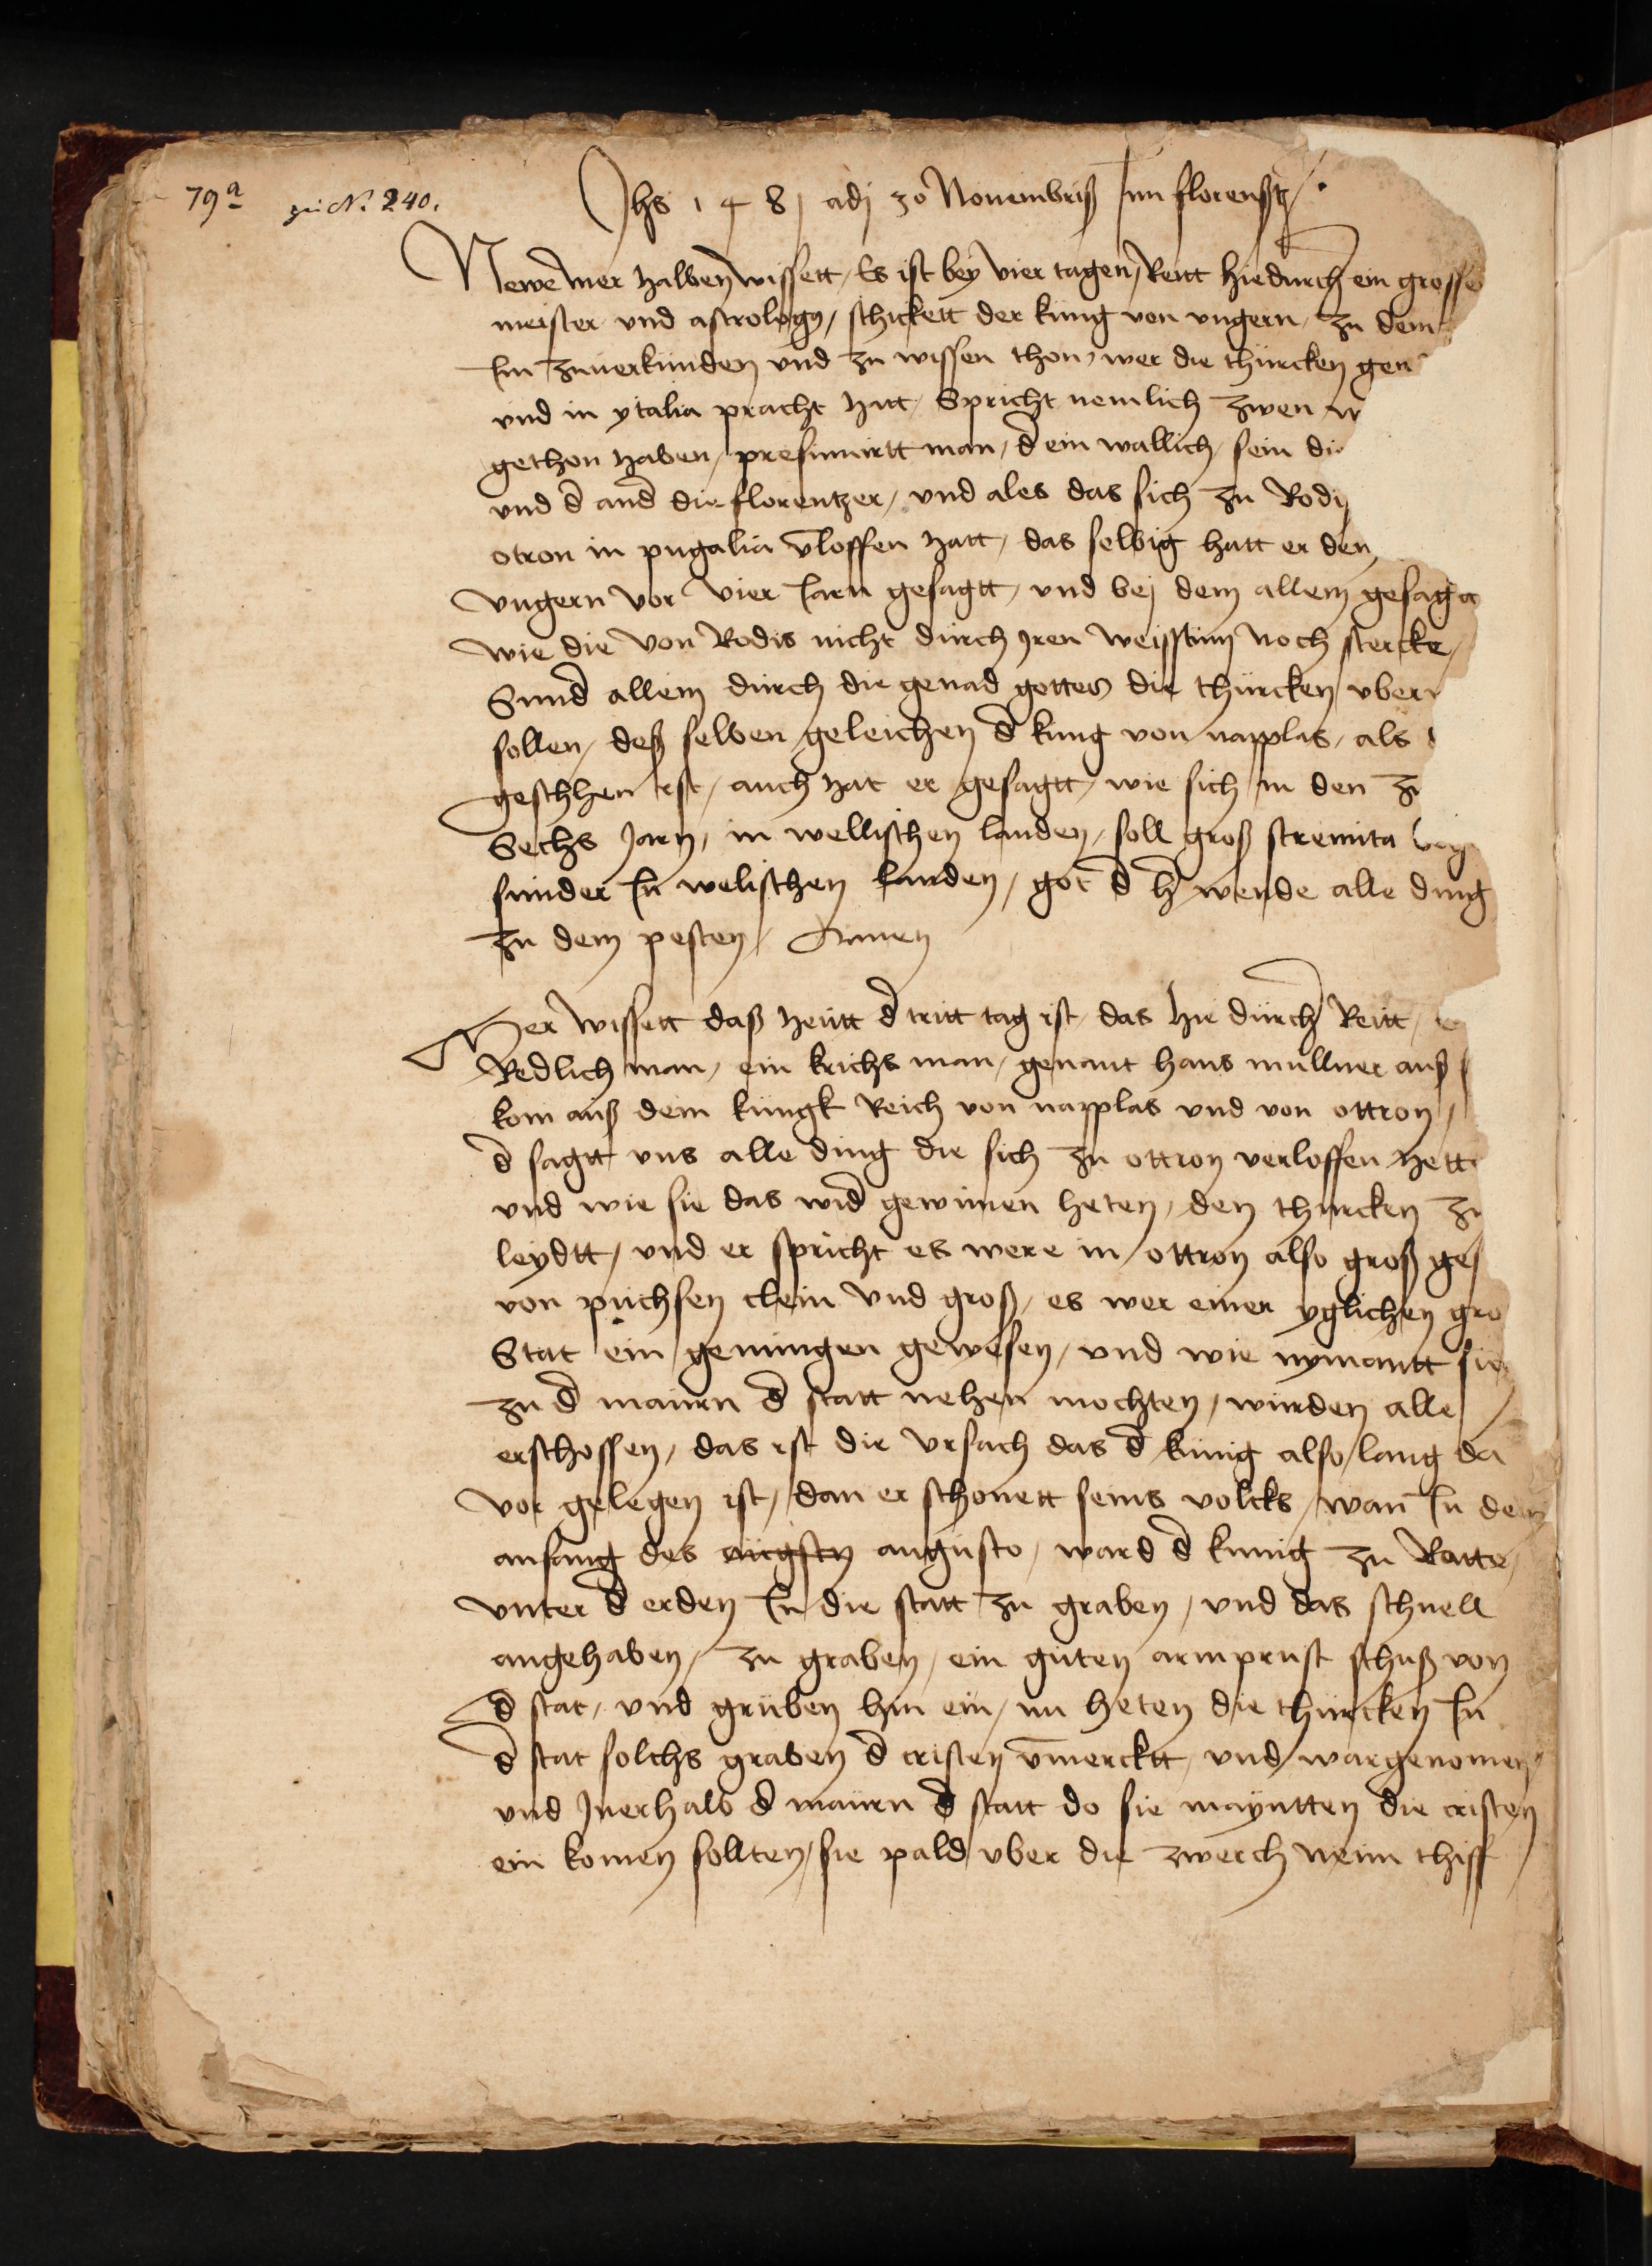 79a zu N. 240.
Jhs 1481 adj 30 Novembriß Inn florenßtz
Newe mer halben wissett, Es ist bey vier tagen, Reitt hie durch ein grosse
meister vnd astrologo, schickett der kung von vngern, zu dem
Im zuuerkunden vnd zu wissen thon, wer die thürcken gen
vnd in ytalia pracht hatt, Spricht nemlich zwen
gethon haben, presumirtt man, d ein wallich, sein die
vnd d and die florentzer, vnd ales das sich zu Rody
otron in pugalia v̄loffen hatt, das selbig hatt er den
vngern vor vier Iarn gesagtt, vnd bej dem allem gesagt
wie die von Rodis nicht durch jren weisstum noch stercke,
Sund allein durch die genad gottes die thürcken vber
sollen, deß selben geleichen d kung von napplas, als
geschhen ist, auch hat er gesagtt, wie sich in den
Sechs Jarn, in wellischen landen, soll groß stremita
sunder In welischen landen, got d h wende alle ding
zu dem pesten, Amen
Mer wissett daß heütt d tritt tag ist, das hie dürch Reitt,
Redlich man, ein krichs man, genant hans mullner auß
kom auß dem küngk Reich von napplas vnd von ottron,
d sagtt vns alle ding die sich zu ottron verloffen hett
vnd wie sie das wid gewinnen heten, den thurcken zu
leydtt, vnd er spricht es were in ottron also groß ges
von püchsen clein vnd groß, es wer einer yglichen gro
Stat ein genungen gewesen, vnd wie nymantt sie
zu d maurn d statt nehen mochten, wurden alle
erschossen, das ist die vrsach das d künig also lang da
vor gelegen ist, dan er schonett seins volcks, wan In dem
anfang des augsten augusto, ward d kunig zu Ratte,
vnter d erden In die statt zu graben, vnd das schnell
angehaben, zu graben, ein guten armprust schuß von
d stat, vnd grüben hin ein, nu heten die thürcken In
d stat solchs graben d cristen v̄mercktt, vnd wargenomen,
vnd Jnerhalb d maurn d statt do sie mayntten die cristen
ein komen sollten, sie pald vber die zwerch thiff